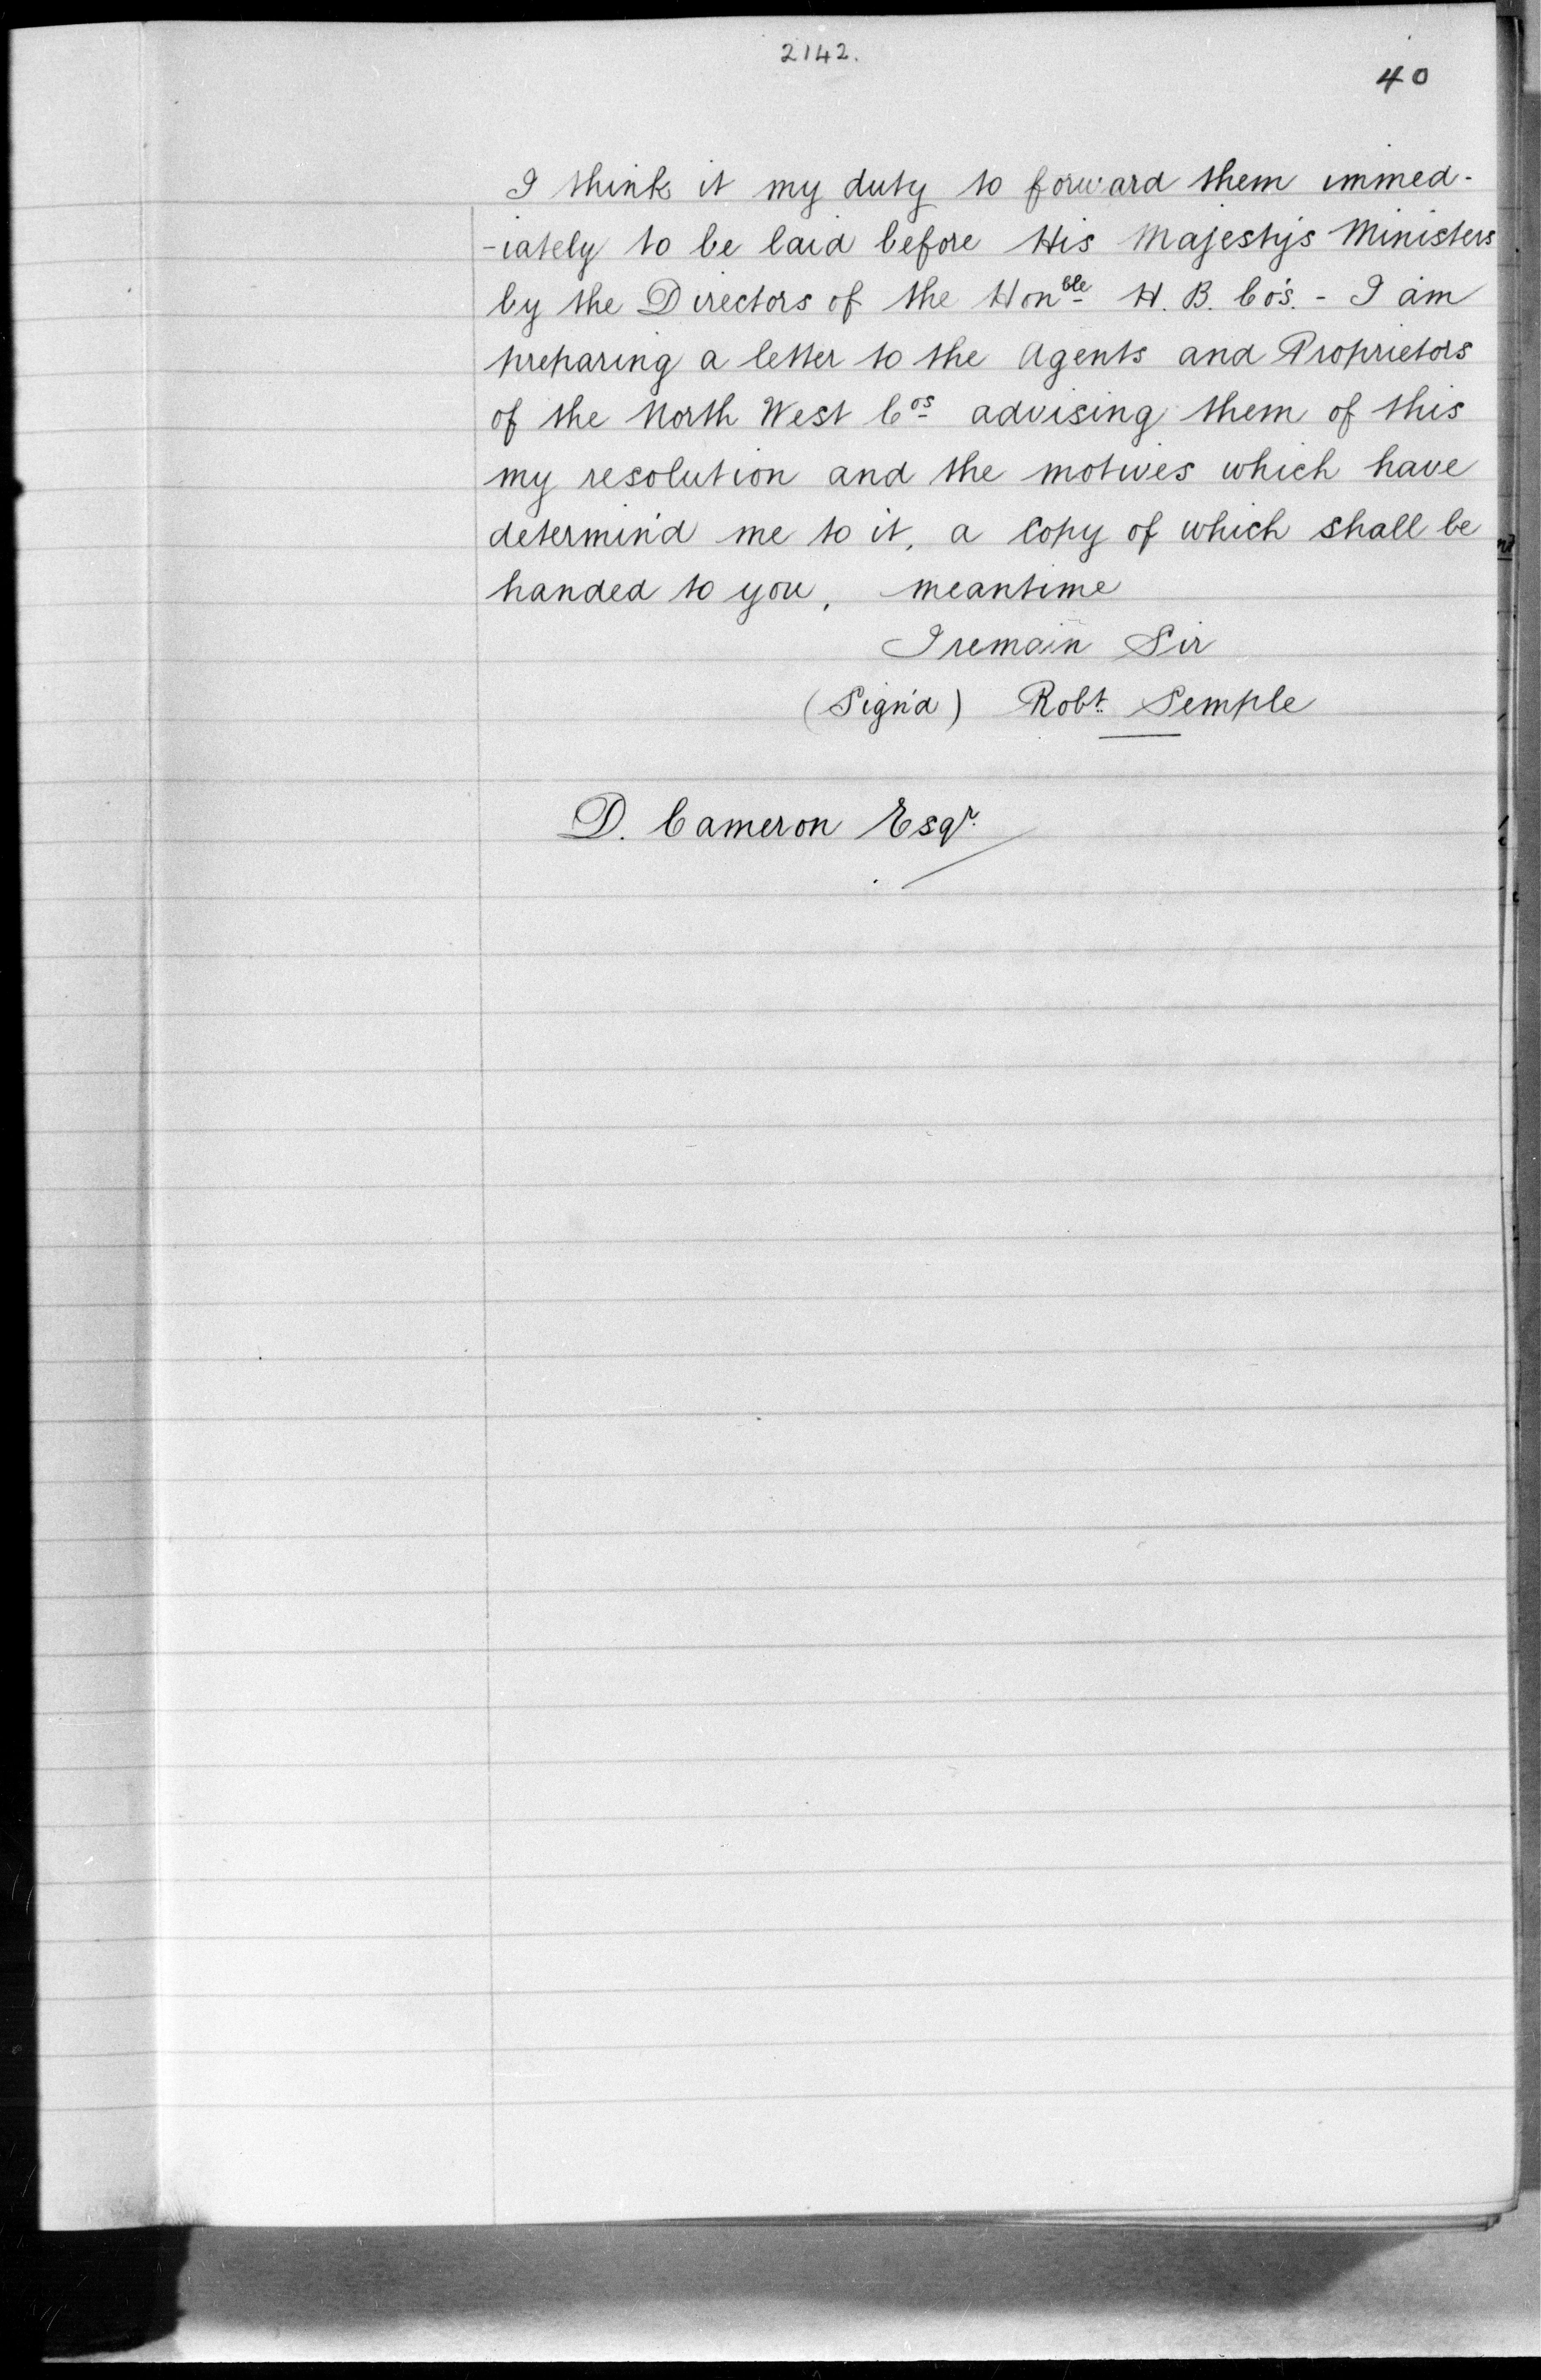 2142.
40
I think it my duty to forward them immed-
-iately to be laid before His Majesty's Ministers
by the Directors of the Honble H. B. Co's. - I am
preparing a letter to the Agents and Proprietors
of the North West Cos advising them of this
my resolution and the motives which have
determin'd me to it, a Copy of which shall be
handed to you, meantime
I remain Sir
(Sign'd) Robt. Semple
D. Cameron Esqr.